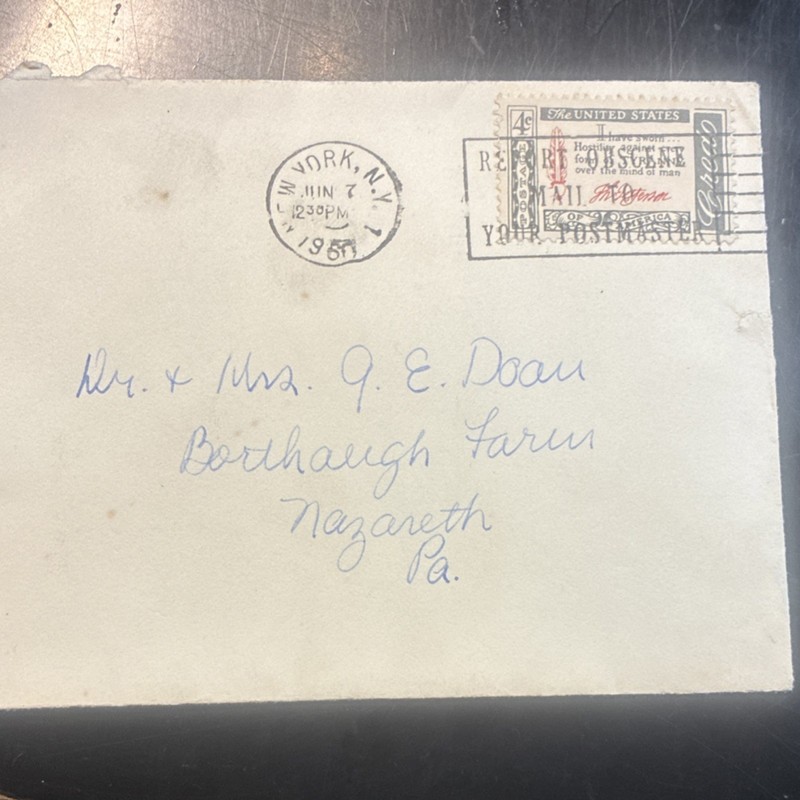 NEW YORK, N.Y. 1
JUN 7
1230 PM
1960
4¢
POSTAGE
The UNITED STATES
OF AMERICA
Credo
I have sworn...
Hostility against every
form of TYRANNY
over the mind of man
Th Jefferson
REPORT OBSCENE
MAIL TO
YOUR POSTMASTER
Dr. & Mrs. G. E. Doan
Borthaugh Farm
Nazareth
Pa.